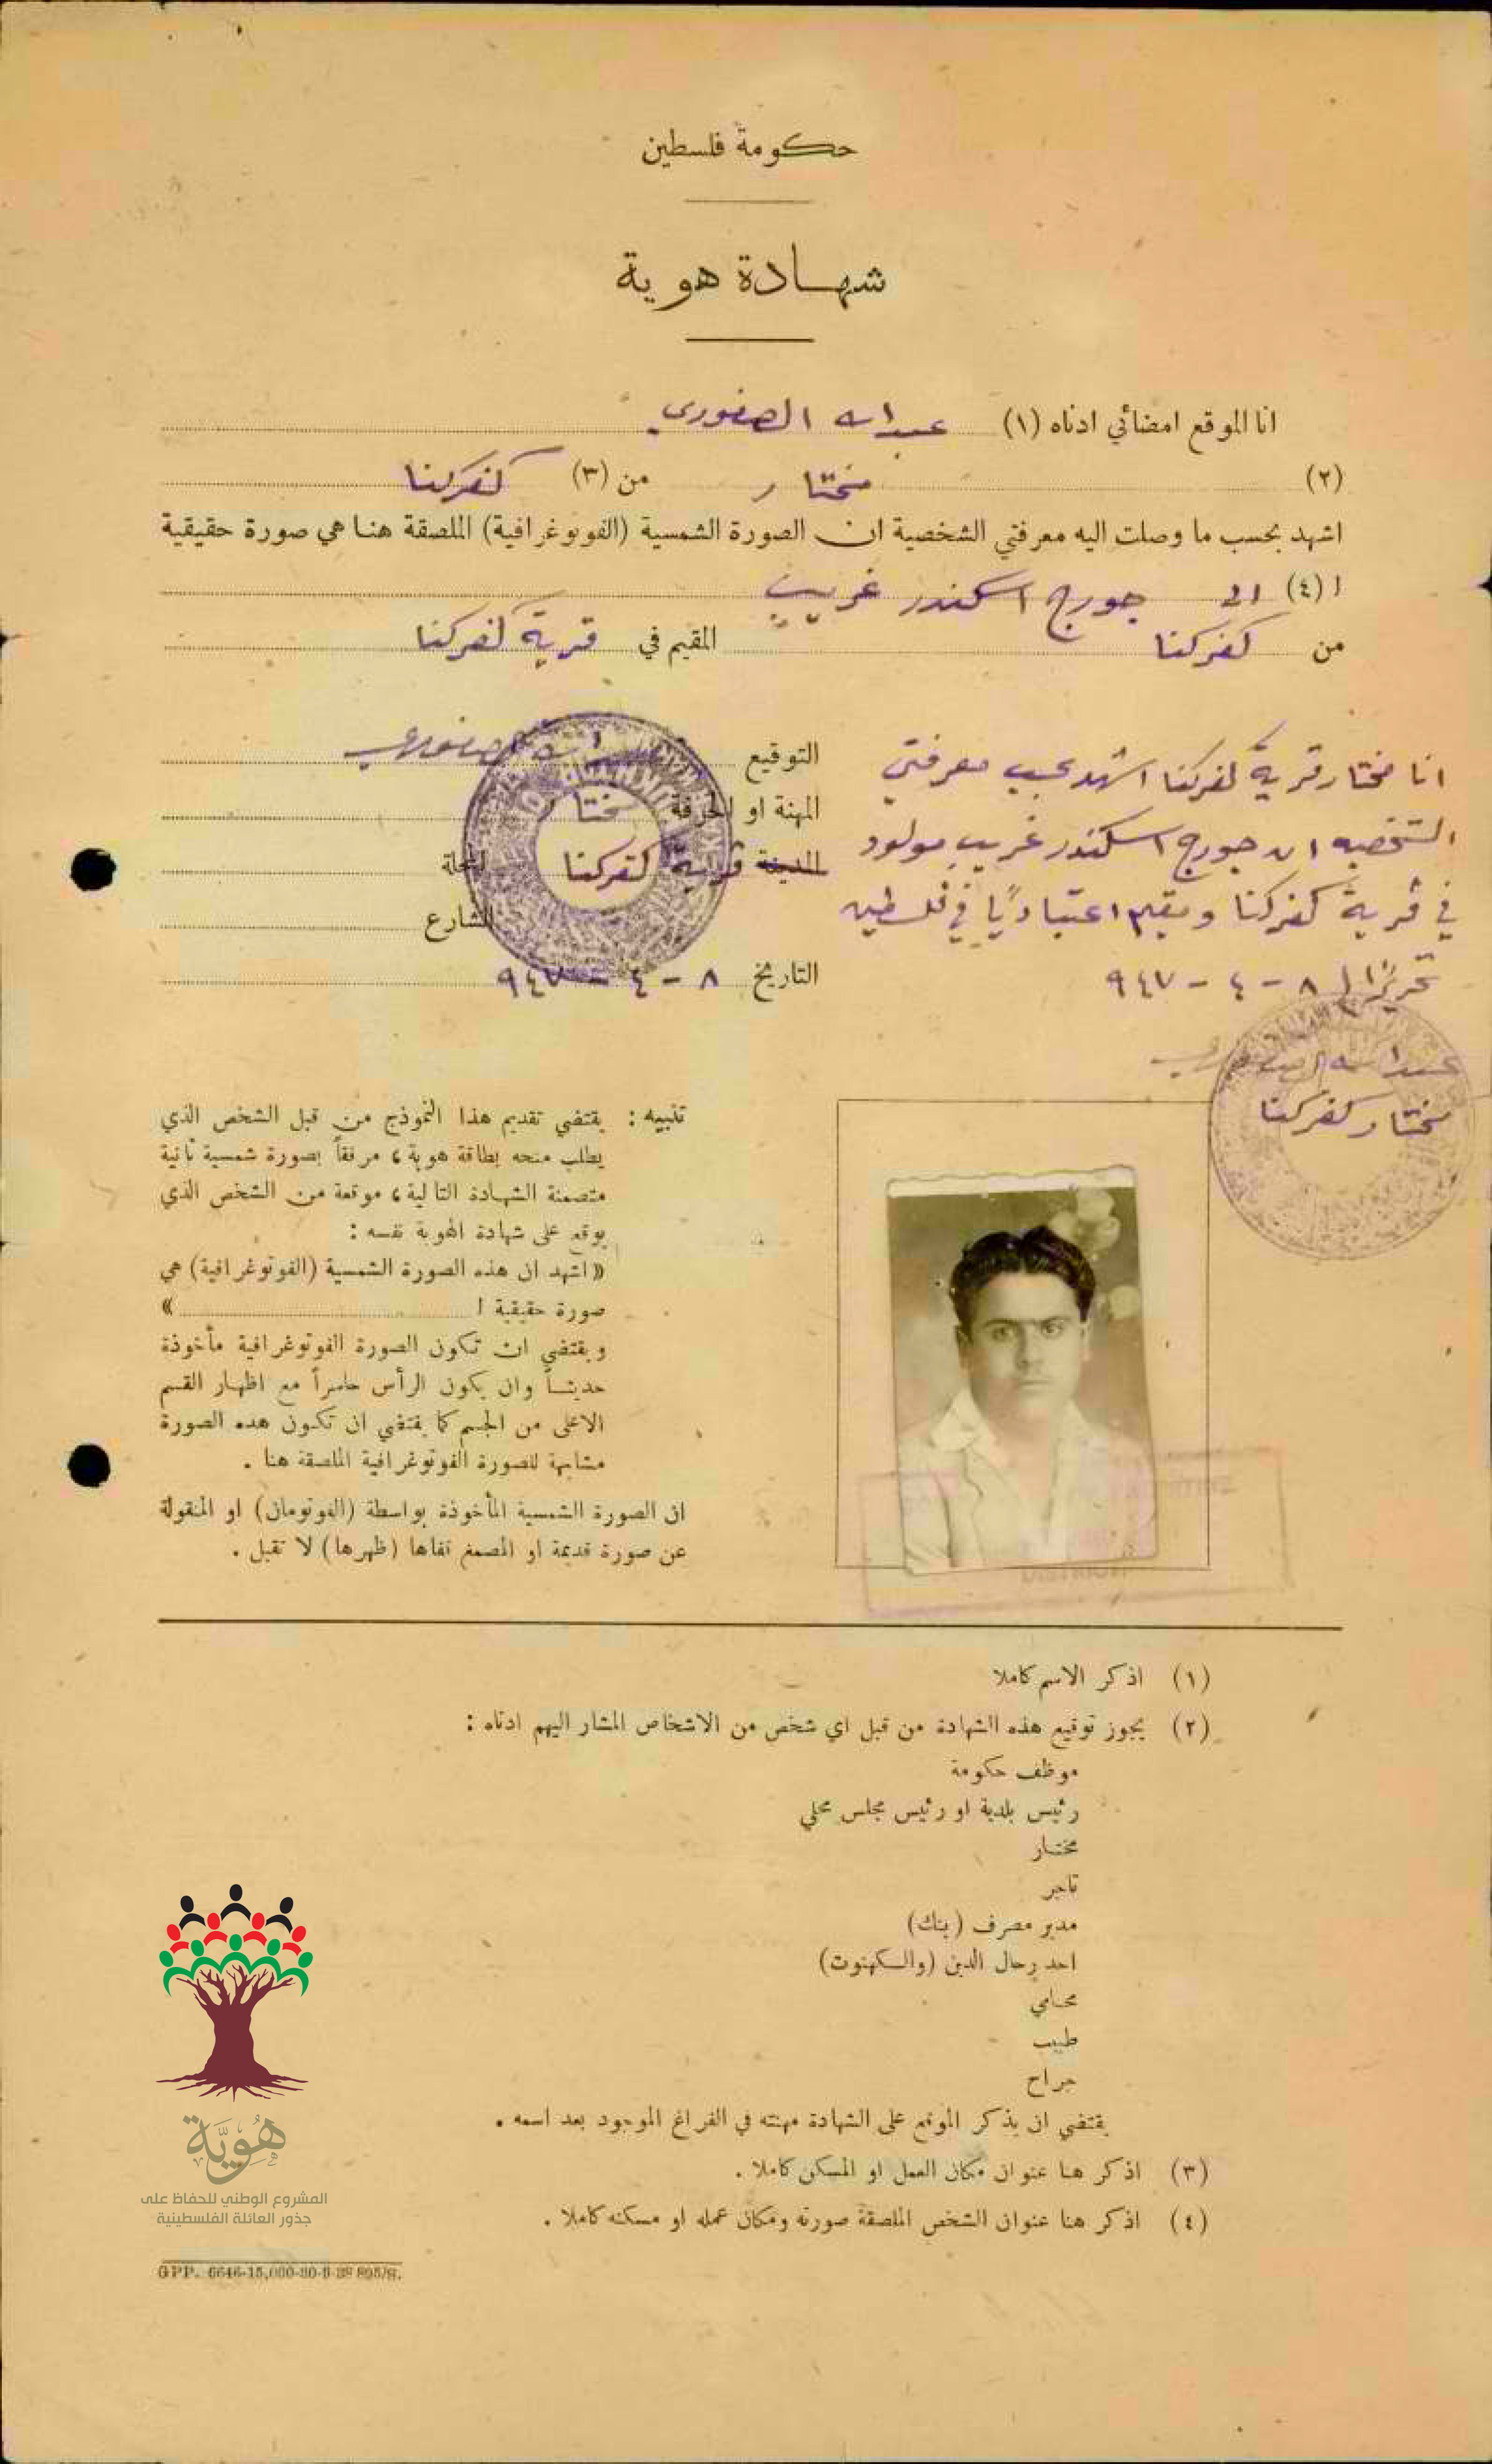 حكومة فلسطين
شهادة هوية
انا الموقع امضائي ادناه (١) عبدالله الصفوري
(٢) مختار من (٣) كفركنا
اشهد بحسب ما وصلت اليه معرفتي الشخصية ان الصورة الشمسية (الفوتوغرافية) الملصقة هنا هي صورة حقيقية
ا (٤) الى جورج اسكندر غريب
من كفركنا المقيم في قرية كفركنا
انا مختار قرية كفركنا اشهد بحسب معرفتي
الشخصيه ان جورج اسكندر غريب مولود
في قرية كفركنا ومقيم اعتياديًا في فلسطين
تحريرًا ٨ - ٤ - ٩٤٧
عبدالله الصفوري
مختار كفركنا
التوقيع عبدالله الصفوري
المهنة او الحرفة مختار
المدينة قرية كفركنا المحلة
الشارع
التاريخ ٨ - ٤ - ٩٤٧
تنبيه : يقتضي تقديم هذا النموذج من قبل الشخص الذي
يطلب منحه بطاقة هوية ، مرفقاً بصورة شمسية ثانية
متضمنة الشهادة التالية ، موقعة من الشخص الذي
يوقع على شهادة الهوية نفسه :
« اشهد ان هذه الصورة الشمسية (الفوتوغرافية) هي
صورة حقيقية ا »
ويقتضي ان تكون الصورة الفوتوغرافية مأخوذة
حديثاً وان يكون الرأس حاسراً مع اظهار القسم
الاعلى من الجسم كما يقتضي ان تكون هذه الصورة
مشابهة للصورة الفوتوغرافية الملصقة هنا .
ان الصورة الشمسية المأخوذة بواسطة (الفوتومان) او المنقولة
عن صورة قديمة او المصمغ قفاها (ظهرها) لا تقبل .
DISTRICT
(١) اذكر الاسم كاملا
(٢) يجوز توقيع هذه الشهادة من قبل اي شخص من الاشخاص المشار اليهم ادناه :
موظف حكومة
رئيس بلدية او رئيس مجلس محلي
مختار
تاجر
مدير مصرف (بنك)
احد رجال الدين (والكهنوت)
محامي
طبيب
جراح
يقتضي ان يذكر الموقع على الشهادة مهنته في الفراغ الموجود بعد اسمه .
(٣) اذكر هنا عنوان مكان العمل او المسكن كاملا .
(٤) اذكر هنا عنوان الشخص الملصقة صورته ومكان عمله او مسكنه كاملا .
هُوِيَّة
المشروع الوطني للحفاظ على
جذور العائلة الفلسطينية
GPP. 6646-15,000-30-9-38 S95/S.